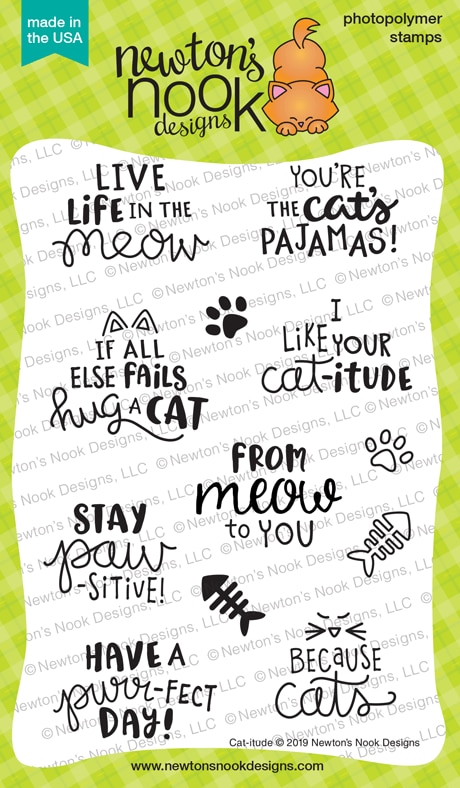 made in
the USA
newton's
nook
designs
photopolymer
stamps
LIVE
LIFE IN THE
meow
YOU'RE
THE cat's
PAJAMAS!
IF ALL
ELSE FAILS
hug A CAT
I
LIKE YOUR
cat-itude
FROM
meow
to YOU
STAY
paw
-SITIVE!
HAVE A
purr-FECT
DAY!
BECAUSE
cats
Cat-itude © 2019 Newton's Nook Designs
www.newtonsnookdesigns.com
© Newton's Nook Designs, LLC